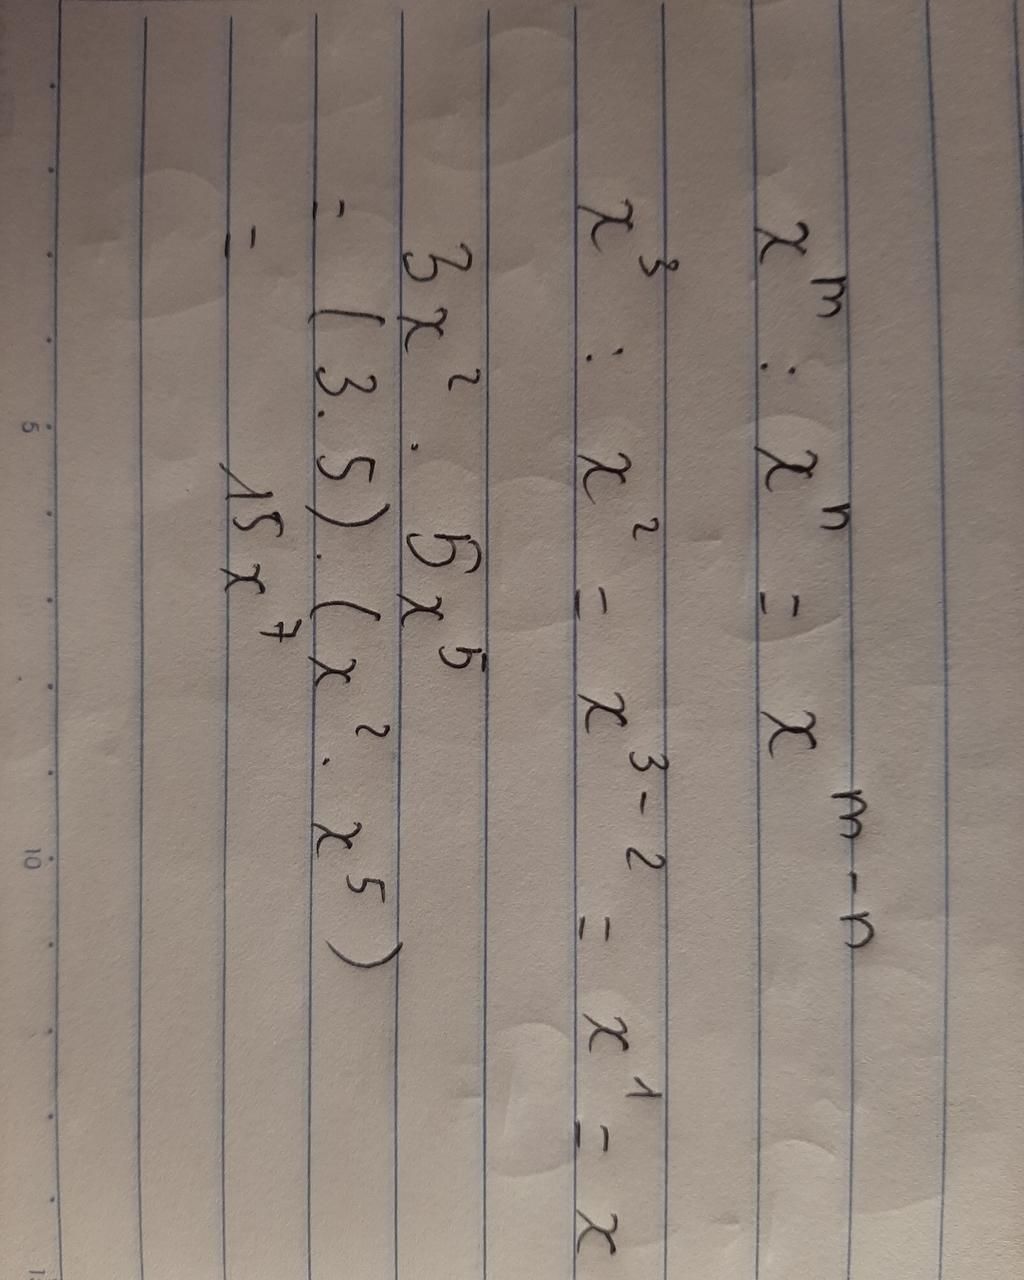 x^m : x^n = x^{m-n}
x^3 : x^2 = x^{3-2} = x^1 = x
3x^2 . 5x^5
= (3.5).(x^2 . x^5)
= 15x^7
5
10